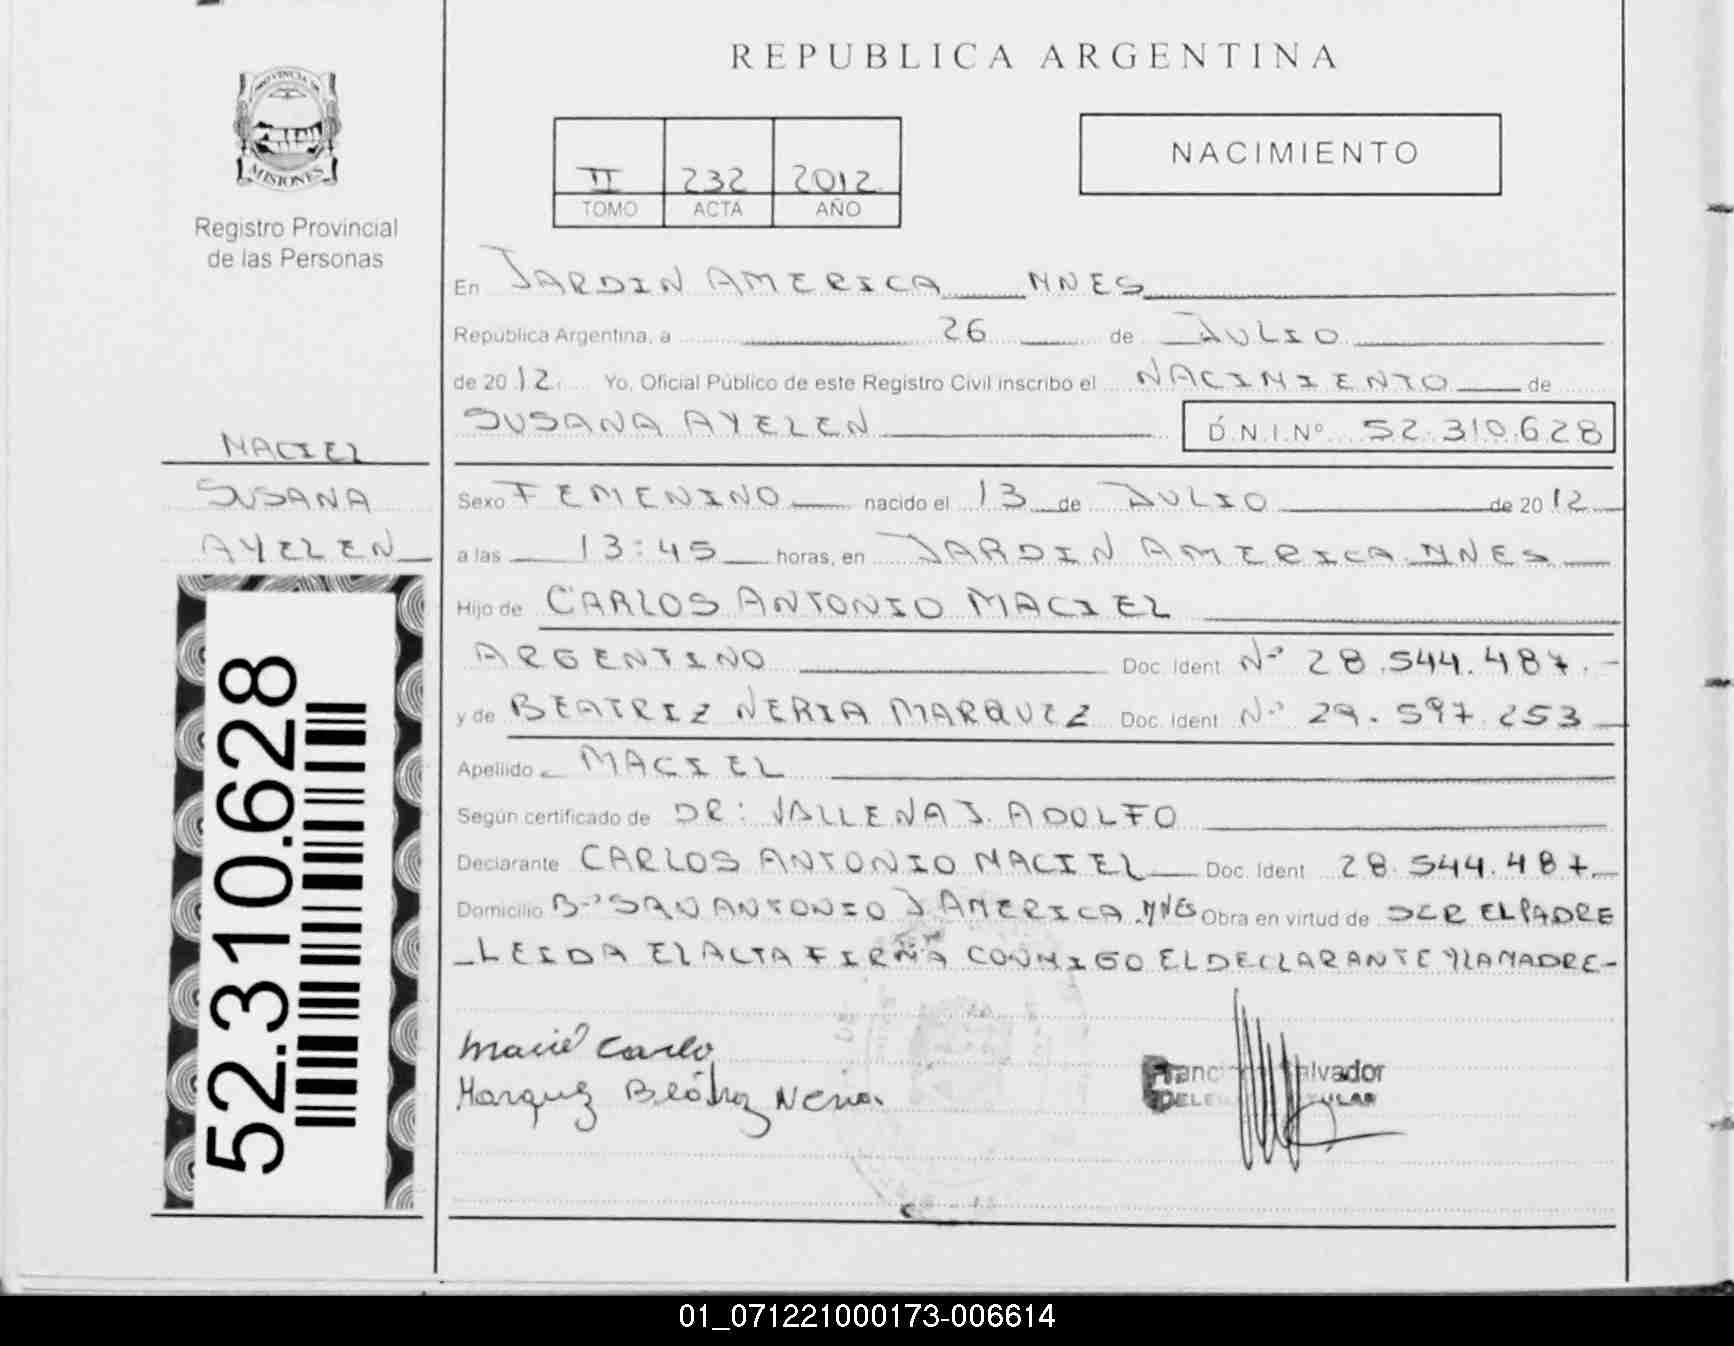 REPUBLICA ARGENTINA
PROVINCIA DE
MISIONES
Registro Provincial
de las Personas
NACIMIENTO
II 232 2012
TOMO ACTA AÑO
En JARDIN AMERICA MNES
República Argentina, a 26 de JULIO
de 2012. Yo, Oficial Público de este Registro Civil inscribo el NACIMIENTO de
SUSANA AYELEN D.N.I.Nº 52.310.628
MACIEL
SUSANA
AYELEN
52.310.628
Sexo FEMENINO nacido el 13 de JULIO de 2012
a las 13:45 horas, en JARDIN AMERICA MNES
Hijo de CARLOS ANTONIO MACIEL
ARGENTINO Doc. Ident Nº 28.544.487.-
y de BEATRIZ NERIA MARQUEZ Doc. Ident Nº 29.597.253
Apellido MACIEL
Según certificado de DR: VALLENA J. ADOLFO
Declarante CARLOS ANTONIO MACIEL Doc. Ident 28.544.487.
Domicilio Bº SAN ANTONIO J AMERICA. MNES Obra en virtud de SER EL PADRE
LEIDA EL ACTA FIRMA CONMIGO EL DECLARANTE Y LA MADRE-
Maciel Carlo
Marquez Beatriz Neria.
01_071221000173-006614